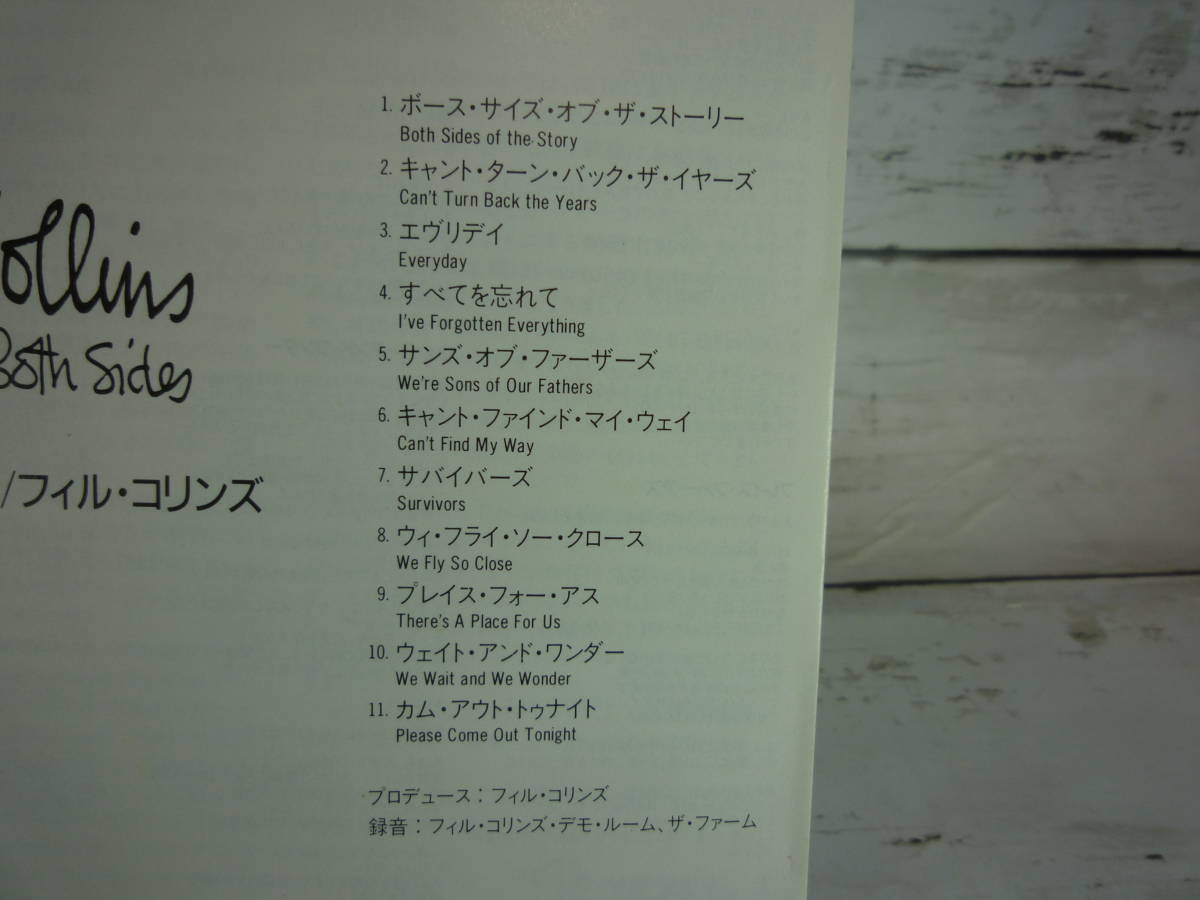 ollins
Both Sides
/フィル・コリンズ
1. ボース・サイズ・オブ・ザ・ストーリー
Both Sides of the Story
2. キャント・ターン・バック・ザ・イヤーズ
Can't Turn Back the Years
3. エヴリデイ
Everyday
4. すべてを忘れて
I've Forgotten Everything
5. サンズ・オブ・ファーザーズ
We're Sons of Our Fathers
6. キャント・ファインド・マイ・ウェイ
Can't Find My Way
7. サバイバーズ
Survivors
8. ウィ・フライ・ソー・クロース
We Fly So Close
9. プレイス・フォー・アス
There's A Place For Us
10. ウェイト・アンド・ワンダー
We Wait and We Wonder
11. カム・アウト・トゥナイト
Please Come Out Tonight
プロデュース：フィル・コリンズ
録音：フィル・コリンズ・デモ・ルーム、ザ・ファーム